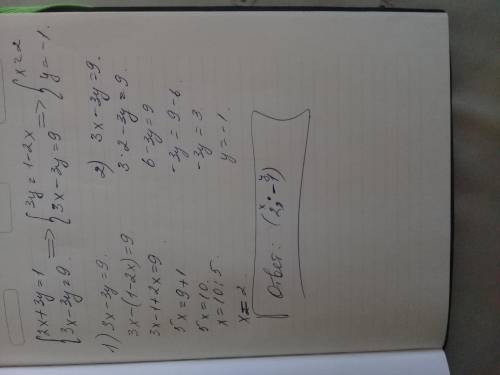 {2x+3y=1 => {3y=1-2x => {x=2
{3x-3y=9. {3x-3y=9 {y=-1.
1) 3x-3y=9.
3x-(1-2x)=9
3x-1+2x=9.
5x=9+1
5x=10.
x=10:5.
x=2.
2) 3x-3y=9.
3·2-3y=9.
6-3y=9
-3y=9-6.
-3y=3
y=-1.
x y
Ответ: (2; -1)